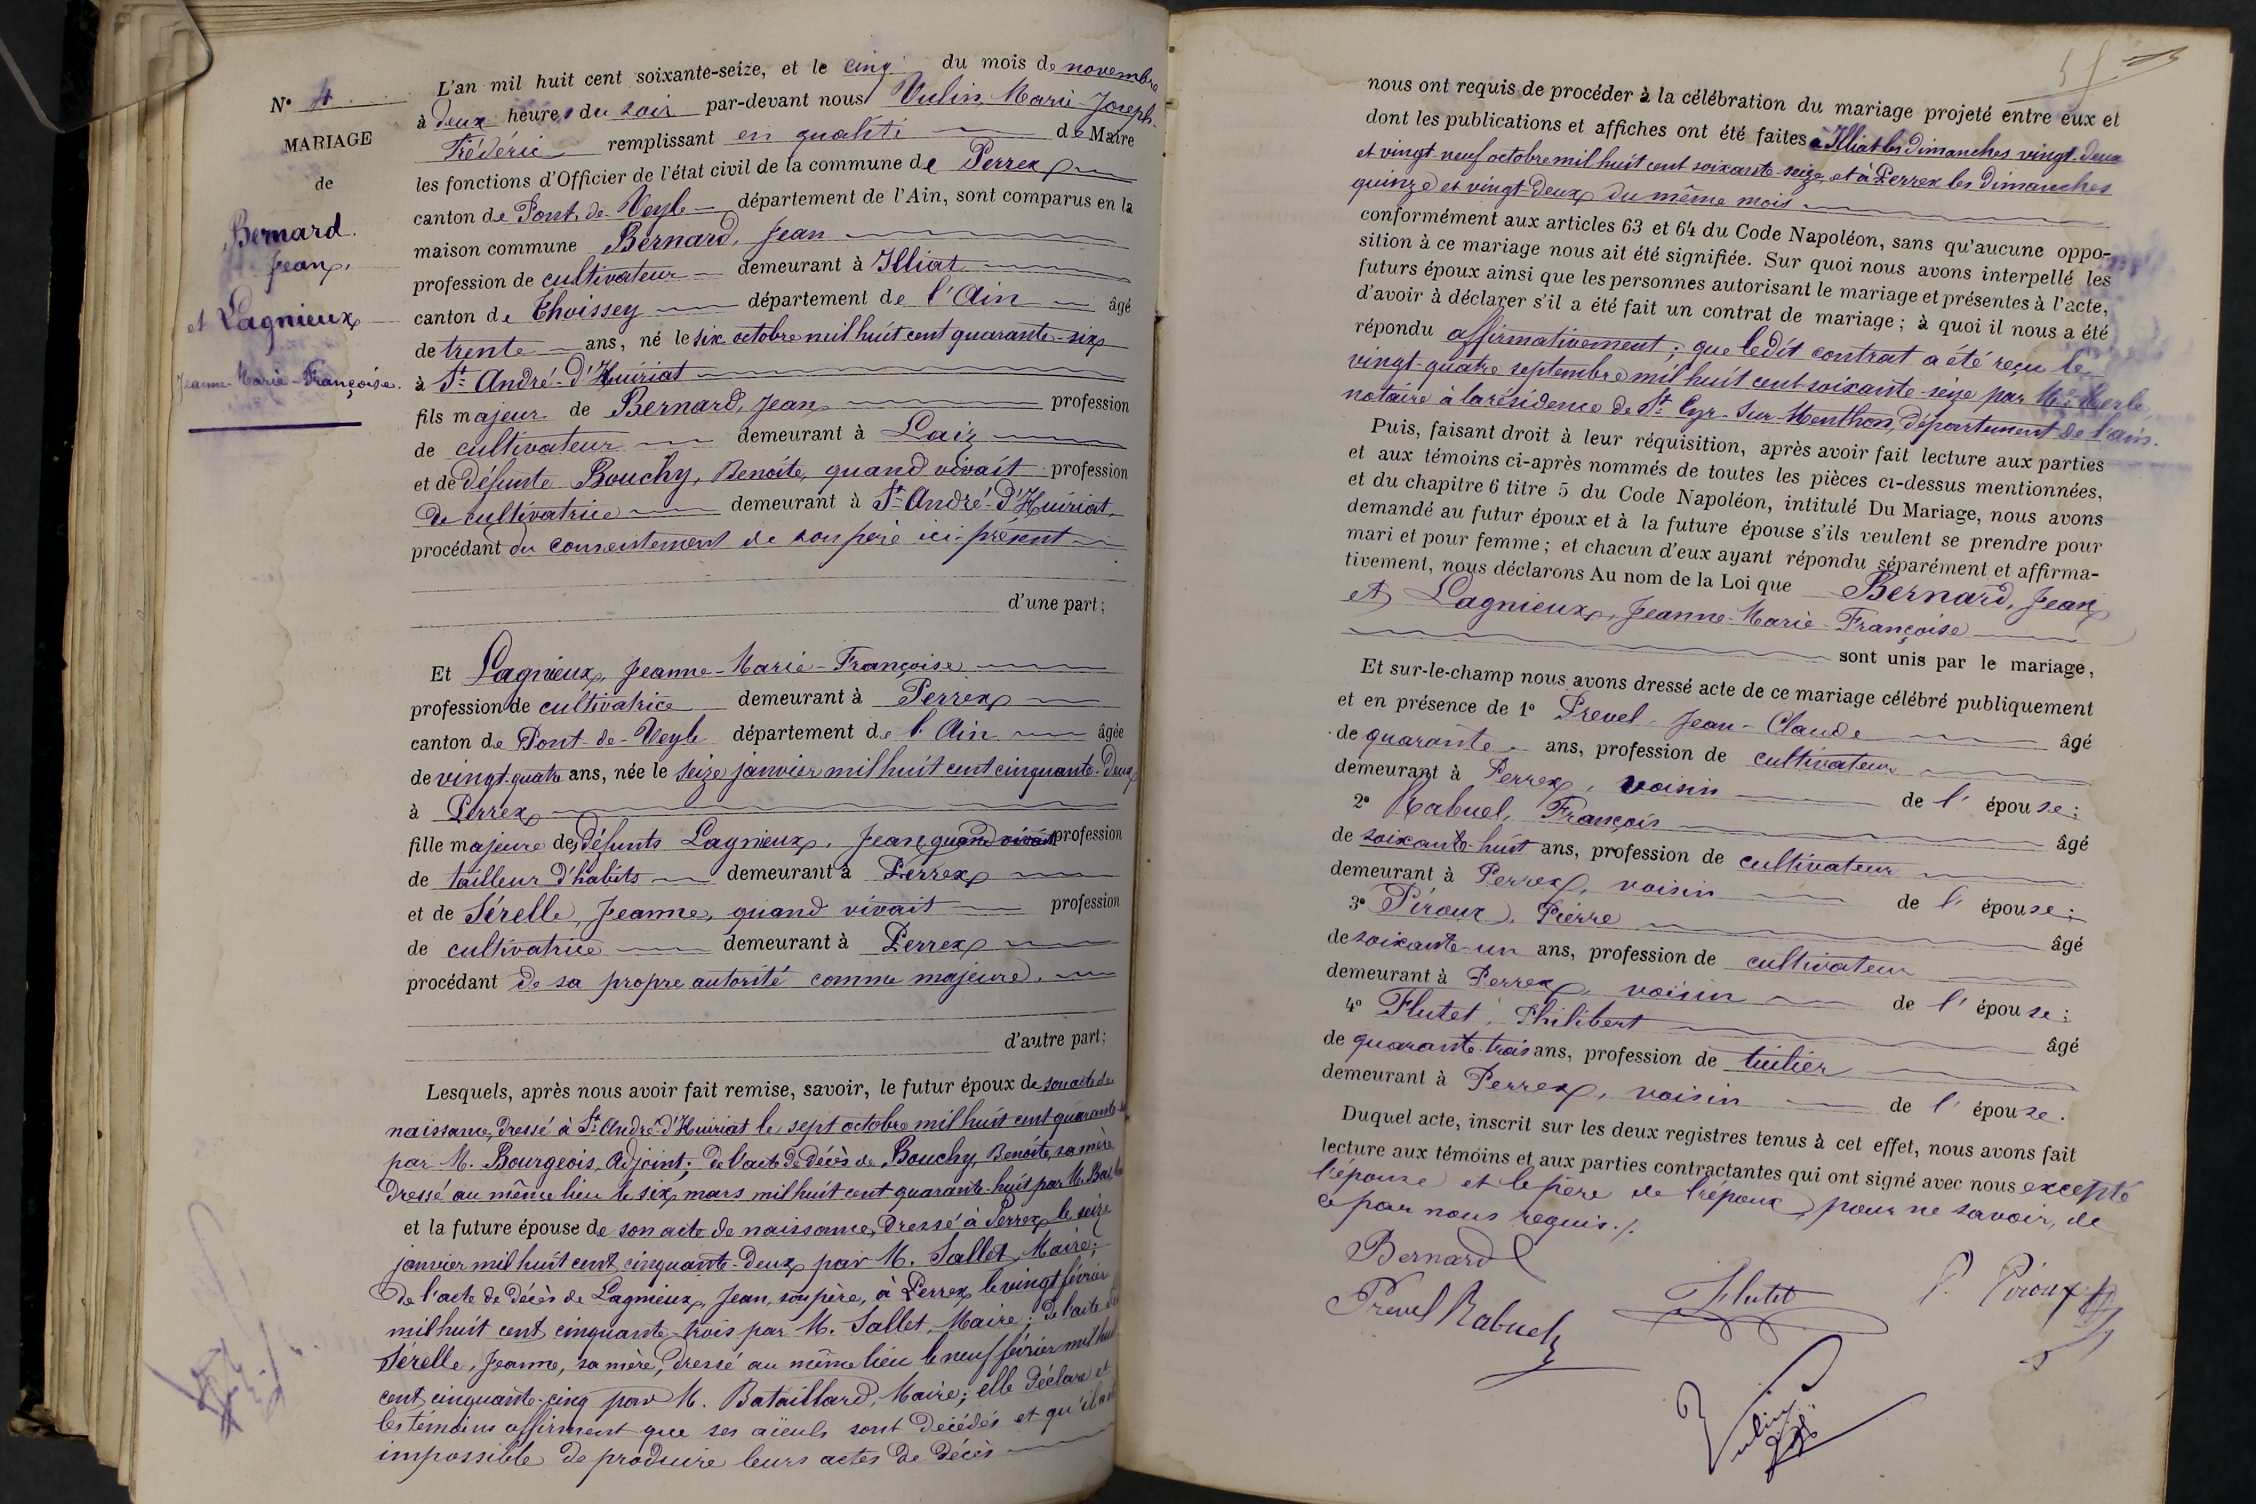 N° 4
MARIAGE
de
Bernard
Jean,
et Lagnieux
Jeanne-Marie-Françoise.
L'an mil huit cent soixante-seize, et le cinq du mois de novembre
à deux heures du soir par-devant nous Vulin, Marie-Joseph-
Frédéric remplissant en qualité de Maire
les fonctions d'Officier de l'état civil de la commune de Perrex
canton de Pont-de-Veyle département de l'Ain, sont comparus en la
maison commune Bernard, Jean
profession de cultivateur demeurant à Illiat
canton de Thoissey département de l'Ain âgé
de trente ans, né le six octobre mil huit cent quarante-six
à St André-d'Huiriat
fils majeur de Bernard, Jean profession
de cultivateur demeurant à Laiz
et de défunte Bouchy, Benoite, quand vivait profession
de cultivatrice demeurant à St André-d'Huiriat,
procédant du consentement de son père ici présent
d'une part;
Et Lagnieux, Jeanne-Marie-Françoise
profession de cultivatrice demeurant à Perrex
canton de Pont-de-Veyle département de l'Ain âgée
de vingt-quatre ans, née le seize janvier mil huit cent cinquante-deux
à Perrex
fille majeure des défunts Lagnieux, Jean, quand vivait profession
de tailleur d'habits demeurant à Perrex
et de Sérelle, Jeanne, quand vivait profession
de cultivatrice demeurant à Perrex
procédant de sa propre autorité comme majeure.
d'autre part;
Lesquels, après nous avoir fait remise, savoir, le futur époux de son acte de
naissance, dressé à St André-d'Huiriat le sept octobre mil huit cent quarante
par M. Bourgeois, adjoint; de l'acte de décès de Bouchy, Benoite, sa mère
dressé au même lieu le six mars mil huit cent quarante-huit par M.
et la future épouse de son acte de naissance, dressé à Perrex le seize
janvier mil huit cent cinquante-deux par M. Sallet, Maire;
de l'acte de décès de Lagnieux, Jean, son père, à Perrex le vingt février
mil huit cent cinquante-trois par M. Sallet, Maire; de l'acte de
Sérelle, Jeanne, sa mère, dressé au même lieu le neuf février mil huit
cent cinquante-cinq par M. Bataillard, Maire; elle déclare et
les témoins affirment que ses aïeuls sont décédés et qu'il
impossible de produire leurs actes de décès
nous ont requis de procéder à la célébration du mariage projeté entre eux et
dont les publications et affiches ont été faites à Illiat les dimanches vingt-deux
et vingt-neuf octobre mil huit cent soixante-seize et à Perrex les dimanches
quinze et vingt-deux du même mois
conformément aux articles 63 et 64 du Code Napoléon, sans qu'aucune oppo-
sition à ce mariage nous ait été signifiée. Sur quoi nous avons interpellé les
futurs époux ainsi que les personnes autorisant le mariage et présentes à l'acte,
d'avoir à déclarer s'il a été fait un contrat de mariage; à quoi il nous a été
répondu affirmativement; que ledit contrat a été reçu le
vingt-quatre septembre mil huit cent soixante-seize par Me Merle,
notaire à la résidence de St Cyr-sur-Menthon, département de l'ain.
Puis, faisant droit à leur réquisition, après avoir fait lecture aux parties
et aux témoins ci-après nommés de toutes les pièces ci-dessus mentionnées,
et du chapitre 6 titre 5 du Code Napoléon, intitulé Du Mariage, nous avons
demandé au futur époux et à la future épouse s'ils veulent se prendre pour
mari et pour femme; et chacun d'eux ayant répondu séparément et affirma-
tivement, nous déclarons Au nom de la Loi que Bernard, Jean
et Lagnieux, Jeanne-Marie-Françoise
sont unis par le mariage,
Et sur-le-champ nous avons dressé acte de ce mariage célébré publiquement
et en présence de 1° Prevel Jean-Claude âgé
de quarante ans, profession de cultivateur
demeurant à Perrex, voisin de l'épouse;
2° Rabuel, François âgé
de soixante-huit ans, profession de cultivateur
demeurant à Perrex, voisin de l'épouse;
3° Piroux, Pierre âgé
de soixante-un ans, profession de cultivateur
demeurant à Perrex, voisin de l'épouse;
4° Flutet, Philibert âgé
de quarante-trois ans, profession de tuilier
demeurant à Perrex, voisin de l'épouse.
Duquel acte, inscrit sur les deux registres tenus à cet effet, nous avons fait
lecture aux témoins et aux parties contractantes qui ont signé avec nous excepté
l'épouse et le père de l'époux, pour ne savoir, de
ce par nous requis./.
Bernard
Prevel Rabuel Flutet P. Piroux
Vulin